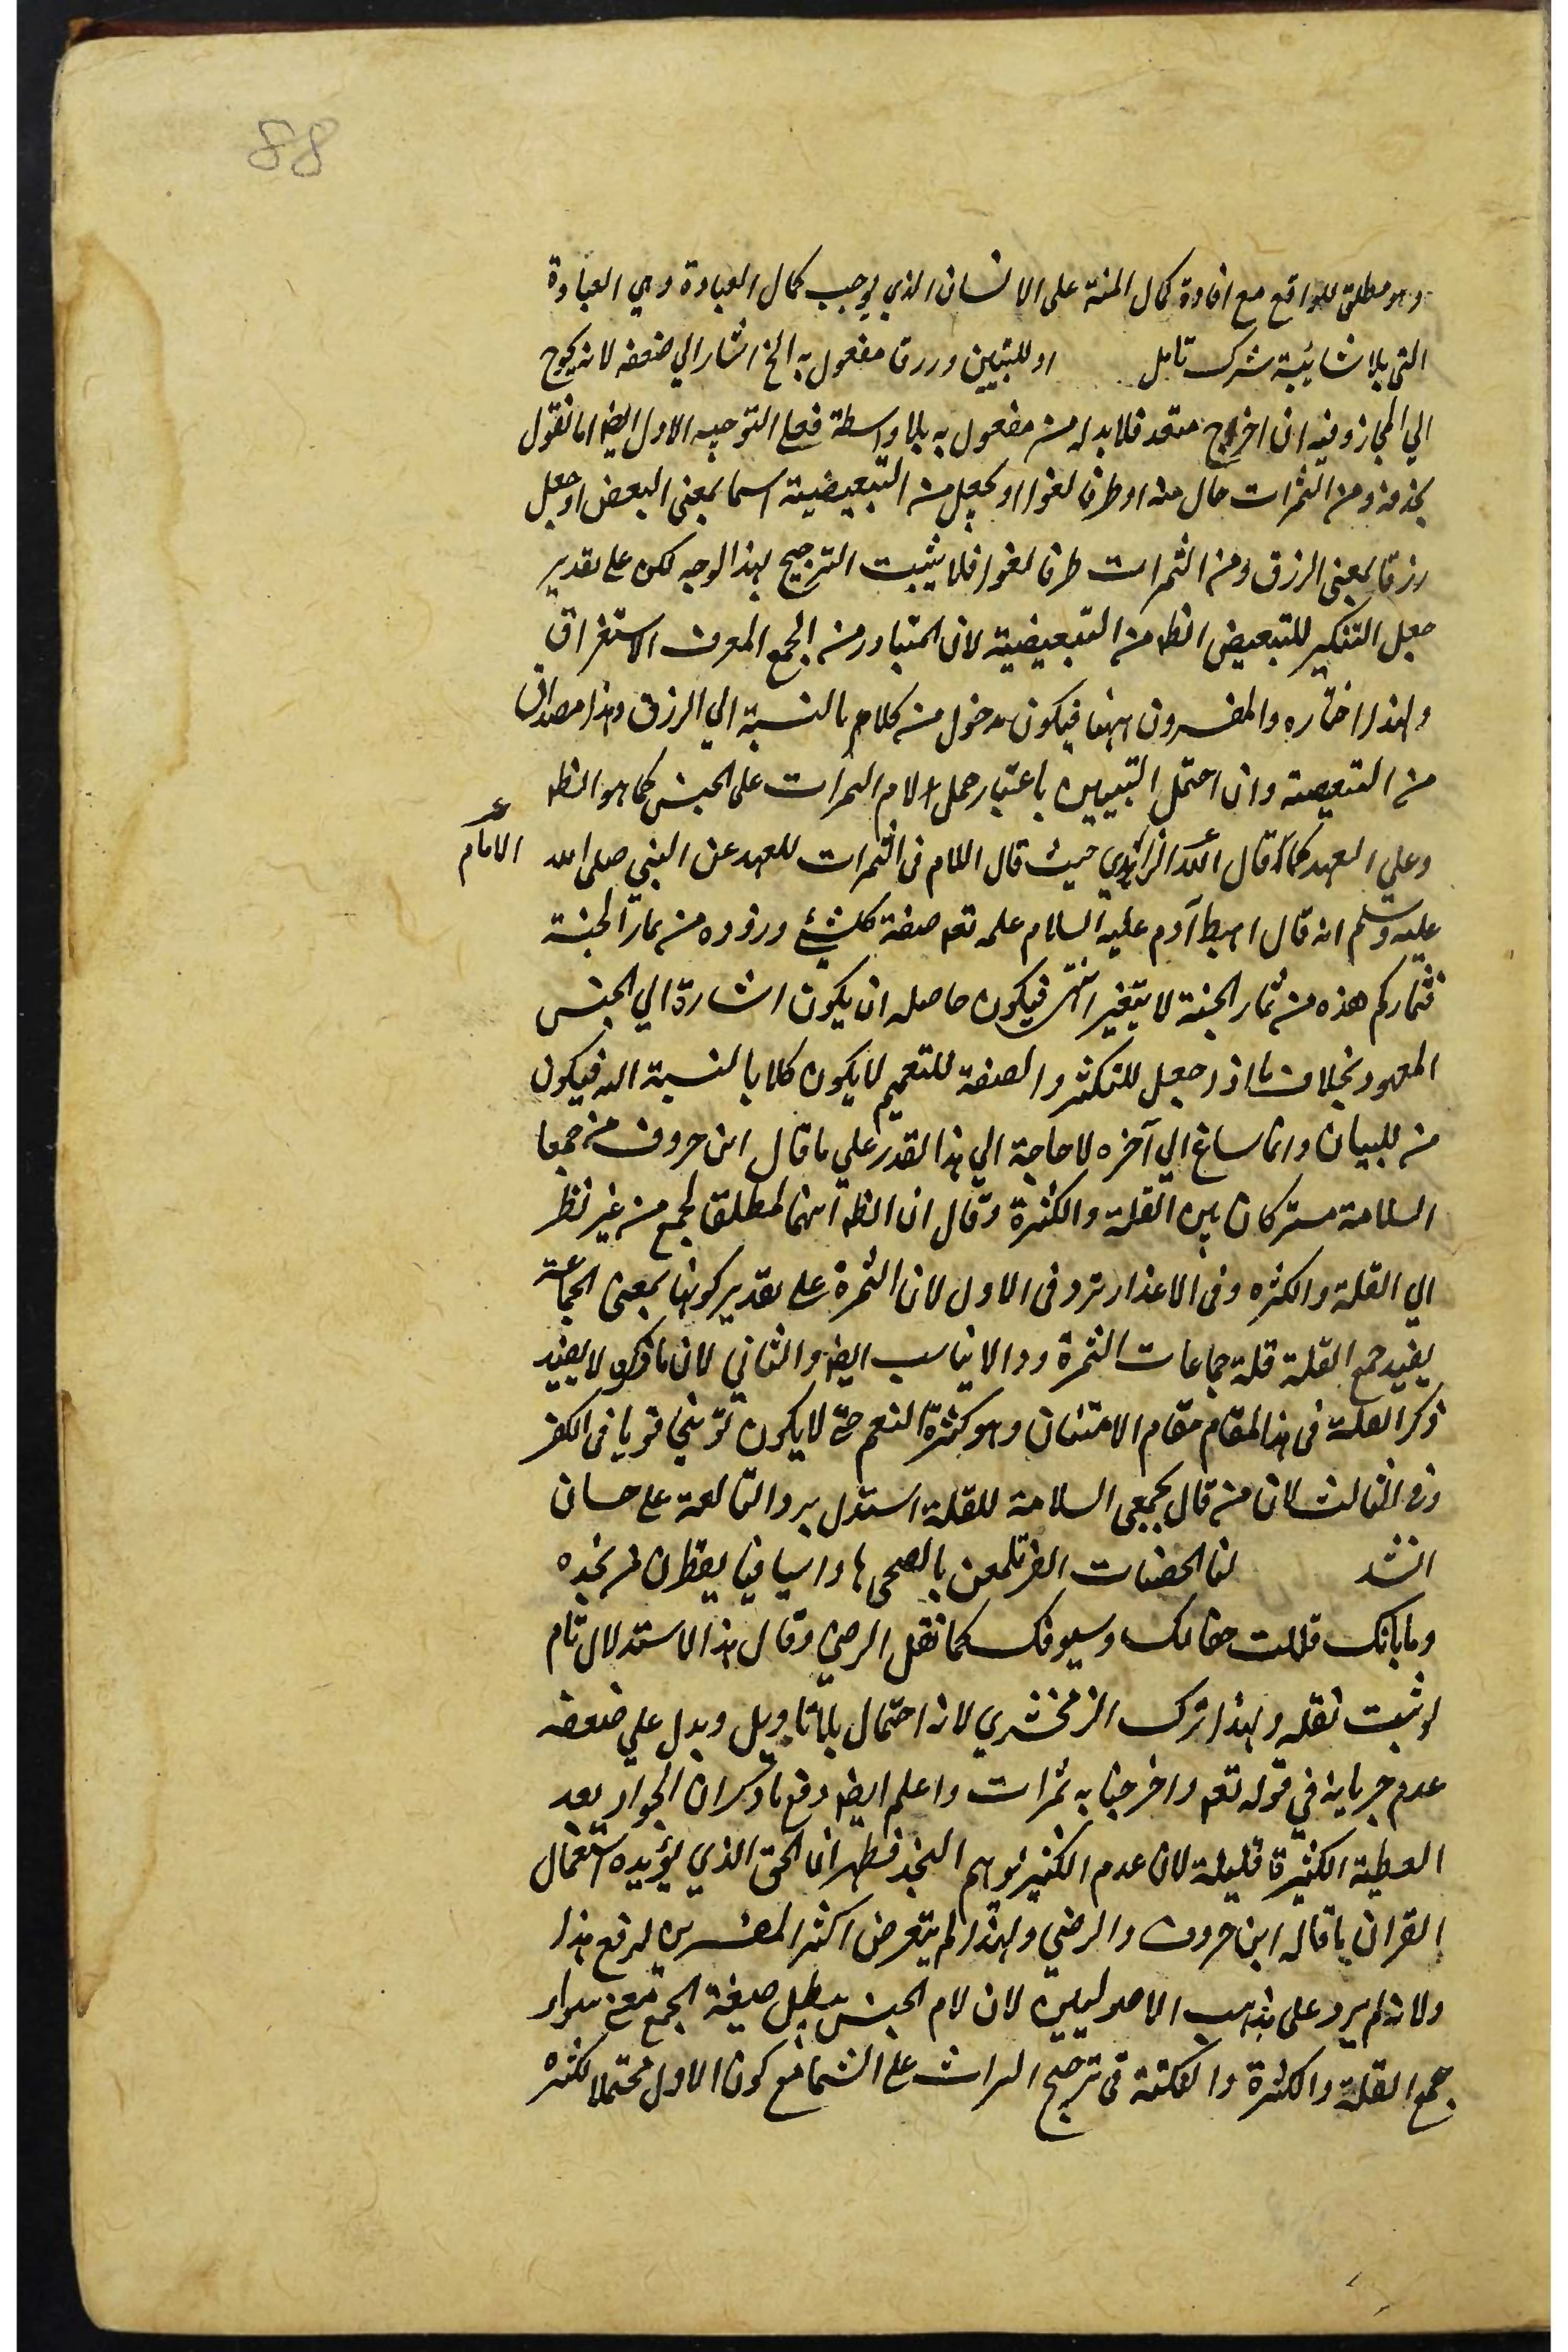 88
وهو مطلق للواقع مع افادة كمال المنة على الانسان الذي يوجب كمال العبادة وهي العبادة
التي بلا شائبة شرك تامل او للتبيين ورزقا مفعول به الخ اشار الي ضعفه لانه يحوج
الي المجاز وفيه ان اخراج متعد فلا بد له من مفعول به بلا واسطة فعلي التوجيه الاول ايضا اما نقول
بحذفه ومن الثمرات حال منه او ظرفا لغوا او بجعل من التبعيضية اسما بمعنى البعض او جعل
رزقا بمعنى الرزق ومن الثمرات ظرفا لغوا فلا يثبت الترجيح بهذا الوجه لكن على تقدير
جعل التنكير للتبعيض الظ من التبعيضية لان المتبادر من الجمع المعرف الاستغراق
ولهذا اختاره والمفسرون ههنا فيكون مدخول من كلام بالنسبة الي الرزق وهذا مصداق
من التبعيضية وان احتمل التبيين باعتبار حمل لام الثمرات على الجنس كما هو الظ
وعلي العهد كما قال الرازي حيث قال اللام في الثمرات للعهد عن النبي صلى الله
الامام
عليه وسلم انه قال اهبط آدم عليه السلام علمه تعه صنعة كل شيء وزوده من ثمار الجنة
فثماركم هذه من ثمار الجنة لا يتغير انتهى فيكون حاصله ان يكون اشارة الي الجنس
المعهود بخلاف ما اذا جعل للتكثير والصنعة للتعميم لا يكون كلا بالنسبة اليه فيكون
من للبيان وانما ساغ الي آخره لا حاجة الي هذا القدر علي ما قال ابن خروف من جمعا
السلامة مشتركان بين القلة والكثرة وقال ان الظ انهما لمطلق الجمع من غير نظر
الي القلة والكثره وفي الاعذار تردد في الاول لان الثمرة على تقدير كونها بمعنى الجماعة
يفيد جمع القلة قلة جماعات الثمرة وذا لا يناسب ايضا والثاني لان ما ذكره لا يفيد
ذكر القلة في هذا المقام مقام الامتنان وهو كثرة النعم حتى لا يكون توبيخا قويا في الكفر
وفي الثالث لان من قال بجمعي السلامة للقلة استدل برد النابغة على حسان
انشد لنا الجفنات الغر يلمعن بالضحى ها واسيافنا يقطرن من نجده
وما بانك قللت جفانك وسيوفك كما نقل الرضي وقال هذا الاستدلال تام
لو ثبت نقله ولهذا ترك الزمخشري لانه احتمال بلا تاويل ويدل علي ضعفه
عدم جريانه في قوله تعه واخرجنا به ثمرات واعلم ايضا دفع ما ذكر ان الجواد يعد
العطية الكثيرة قليلة لان عدم الكثير يوهم البخل فظهر ان الحق الذي يؤيده استعمال
القران ما قاله ابن خروف والرضي ولهذا لم يتعرض اكثر المفسرين لدفع هذا
ولانه لم يرد على مذهب الاصوليين لان لام الجنس يبطل صيغة الجمع
جمع القلة والكثرة والنكتة في ترجيح الثمرات على الثمار مع كون الاول محتملا لكثرة